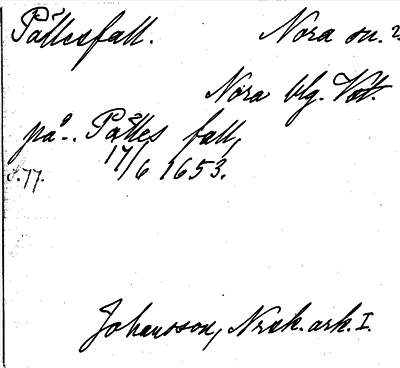 Påttesfall. Nora sn.
Nora blg. Vst.
på.. Påttes fall,
17/6 1653.
s. 77.
Johansson, Nrak. ark. I.